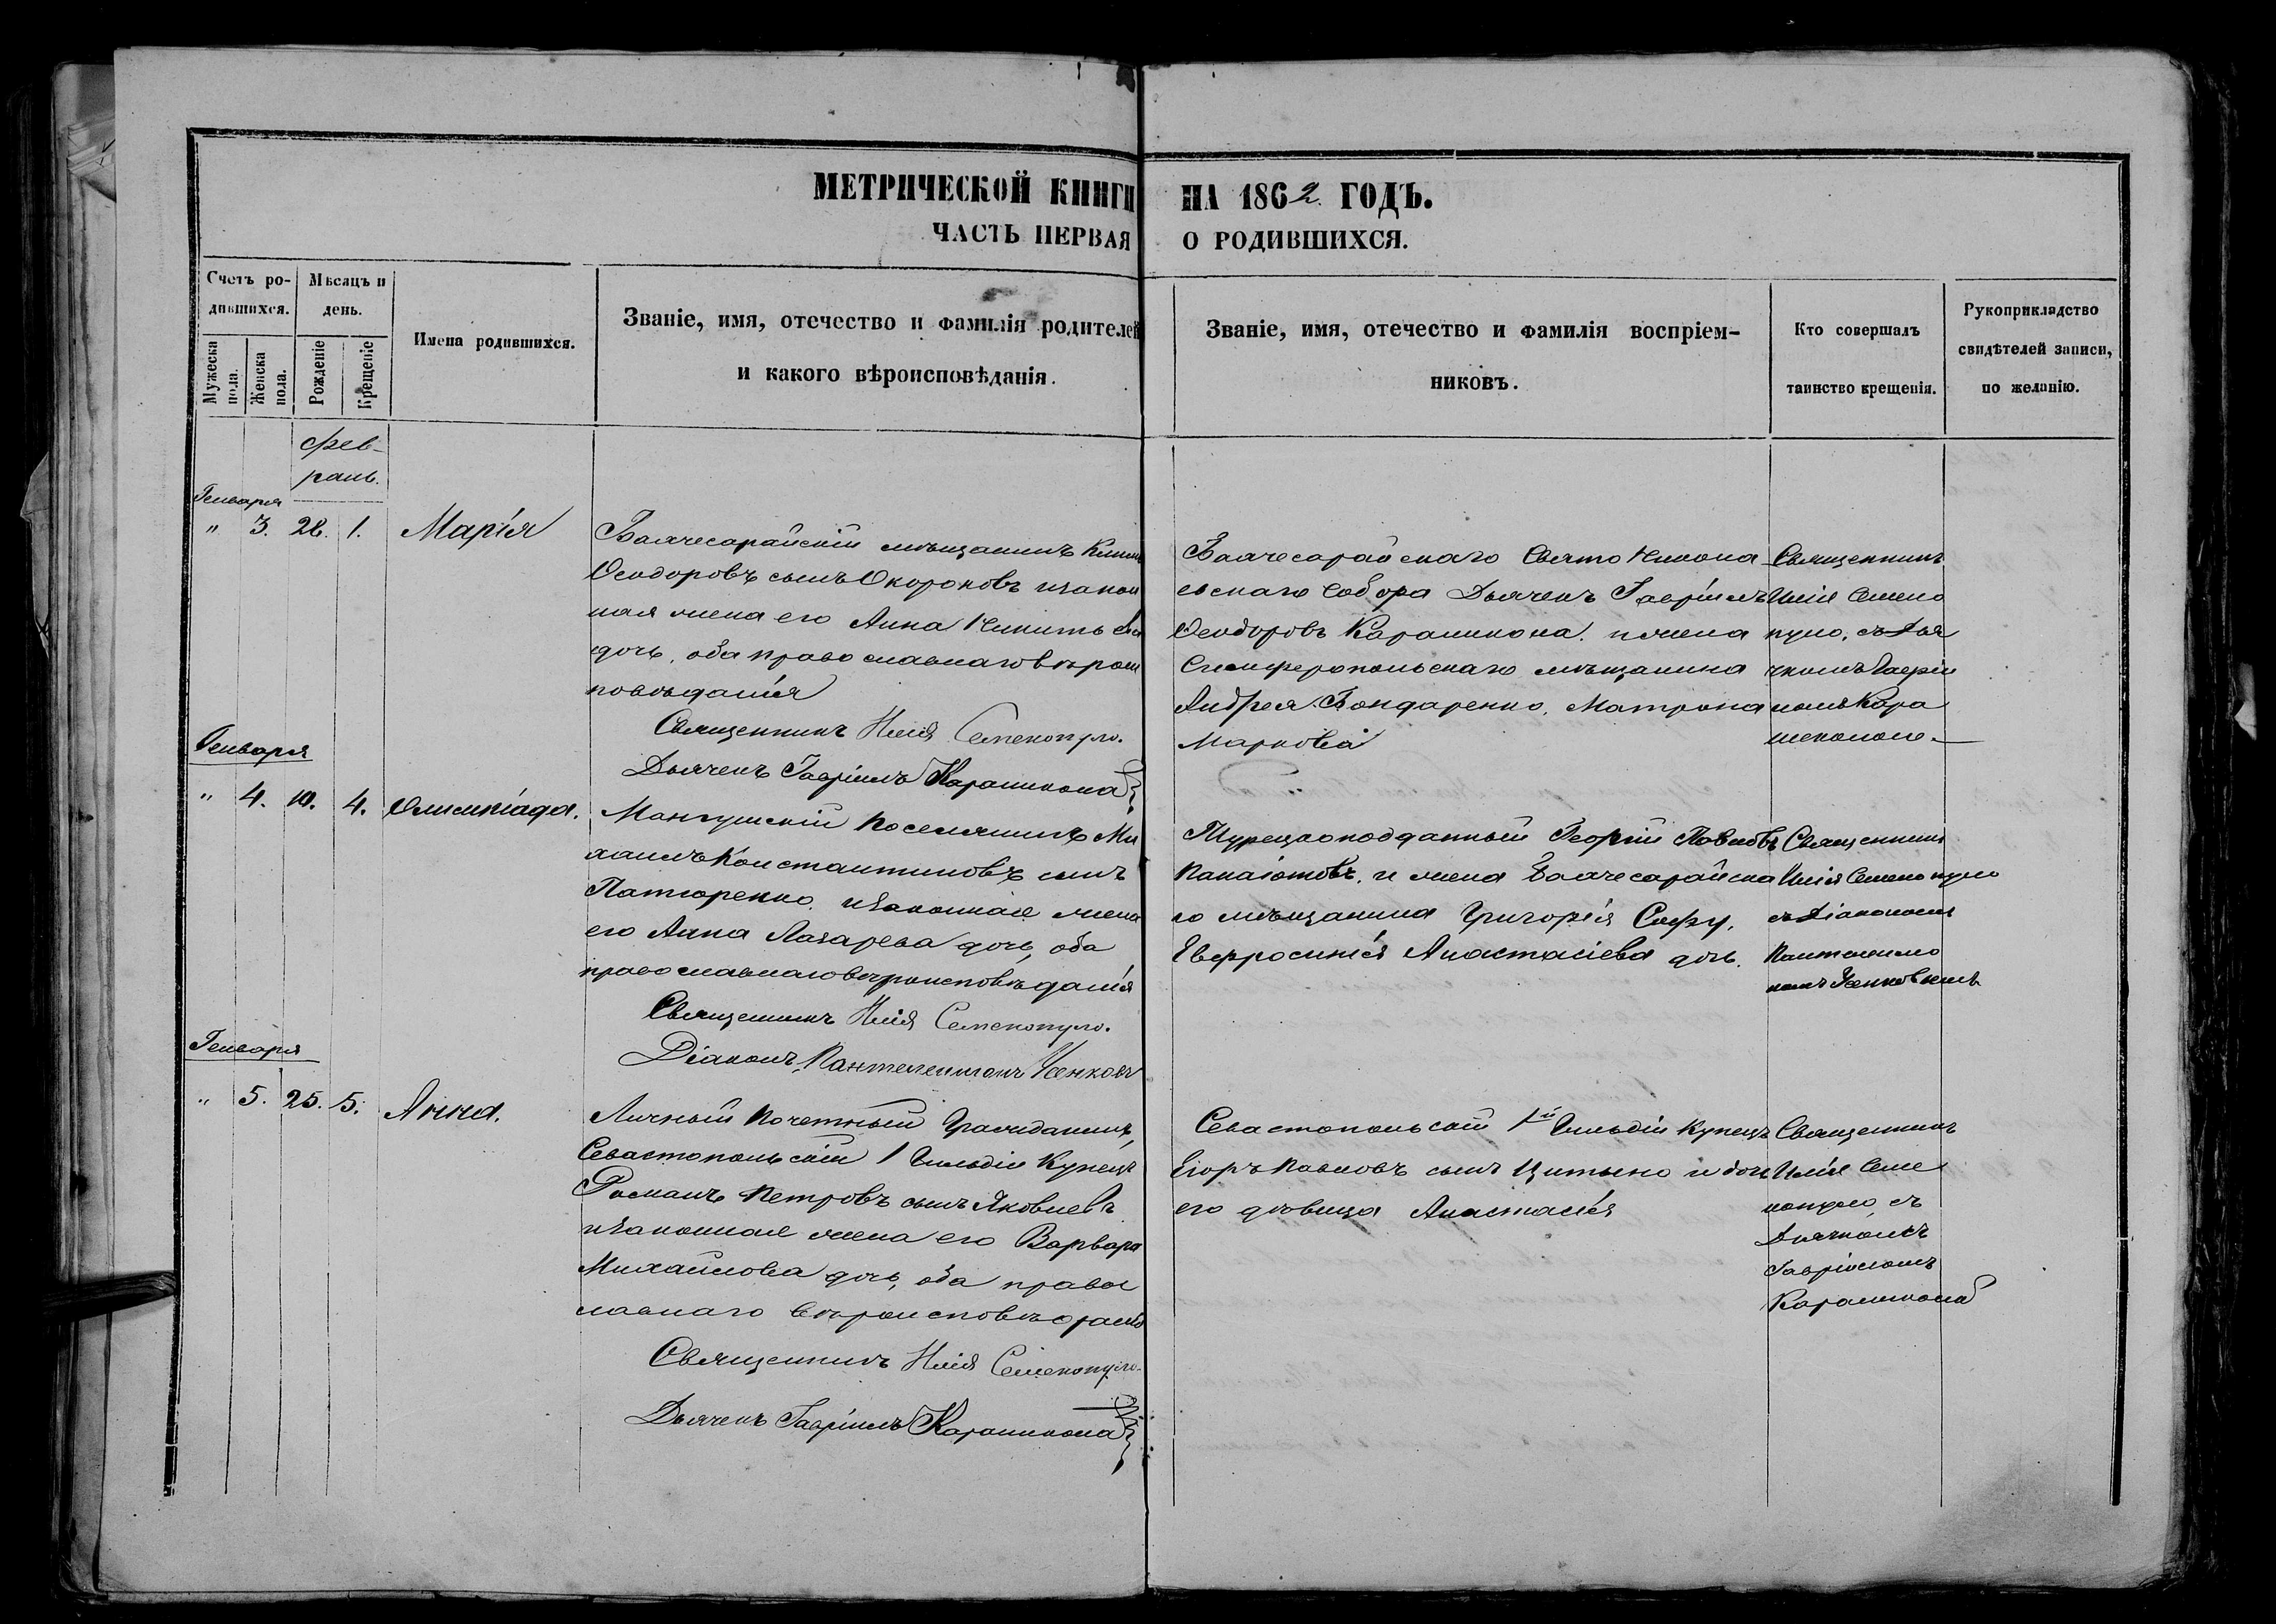 МЕТРИЧЕСКОЙ КНИГИ НА 1862 ГОДЪ.
ЧАСТЬ ПЕРВАЯ О РОДИВШИХСЯ.
Счетъ ро-
дившихся.
Мужеска
пола.
Женска
пола.
Мѣсяцъ и
день.
Рожденіе
Крещеніе
Имена родившихся.
Званіе, имя, отечество и фамилія родителей
и какого вѣроисповѣданія.
Званіе, имя, отечество и фамилія воспріем-
никовъ.
Кто совершалъ
таинство крещенія.
Рукоприкладство
свидѣтелей записи,
по желанію.
Фев-
раль.
Генваря
" 3. 28. 1. Марія
Бахчесарайскій мѣщанинъ
Ѳеодоровъ сынъ Окороковъ изакон
ная жена его Анна Никитъева
дочь, оба православнаго вѣроис
повѣданія
Священникъ Илія Семенопуло.
Дьячекъ Гавріилъ Карашнома
Бахчесарайскаго Свято Никола
евскаго Собора Дьячекъ Гавріилъ
Ѳеодоровъ Карашнома. и жена
Симферопольскаго мѣщанина
Андрея Бондаренко, Матрона
Маркова
Священникъ
Илія Семено
пуло, съ Дья
чкомъ Гаврiи
ломъ Кара
Генваря
" 4. 10. 4. Олимпіада.
Мангушскій Поселянинъ Ми
хаилъ Константиновъ сынъ
Патюренко. изаконная жена
его Анна Лазарева дочь, оба
православнаго вѣроисповѣданія
Священникъ Илія Семенопуло.
Діаконъ, Пантелеимонъ Ченковъ
Турецкоподданный Георгій Павловъ
Панаіотовъ. и жена Бахчесарайска
го мѣщанина Григорія Сафу,
Евфросинія Анастасіева дочь.
Священникъ
Илія Семенопуло
съ Діакономъ
Пантелеимо
номъ Ченковымъ
Генваря
" 5. 25. 5. Анна.
Личный Почетный Гражданинъ,
Севастопольскій 1 Гильдіи Купецъ
Романъ Петровъ сынъ Яковлевъ
изаконная жена его Варвара
Михайлова дочь, оба правос
лавнаго вѣроисповѣданія
Священникъ Илія Семенопуло.
Дьячекъ Гавріилъ Карашнома
Севастопольскій 1й Гильдіи Купецъ
Егоръ Павловъ сынъ Цитыно и дочь
его дѣвица Анастасія
Священникъ
Илія Семе
нопуло, съ
Дьячкомъ
Гавріиломъ
Карашнома